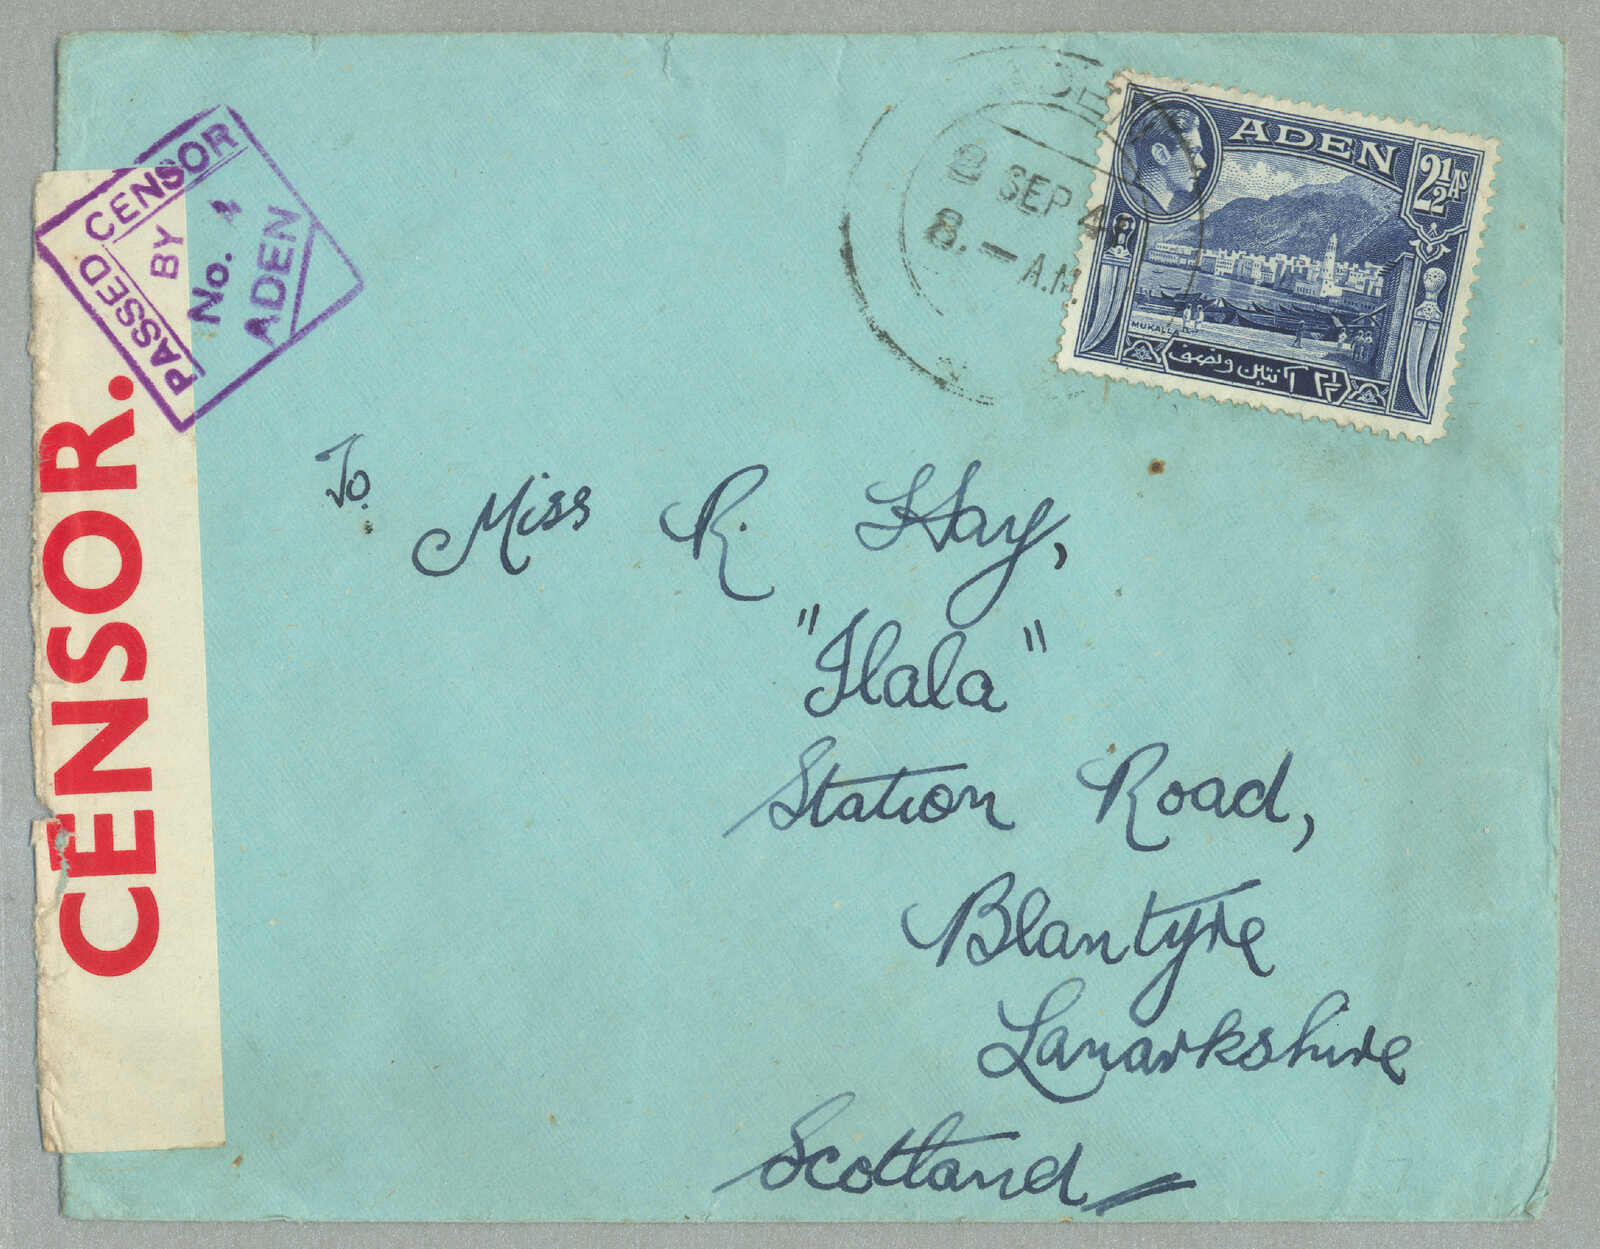 PASSED CENSOR
BY
No. 4
ADEN
CENSOR.
ADEN
2 SEP 4
8. — A.M.
ADEN
2½ As
MUKALLA
٢½ آنتين ونصف
To.
Miss R. Hay,
"Ilala"
Station Road,
Blantyre
Lanarkshire
Scotland